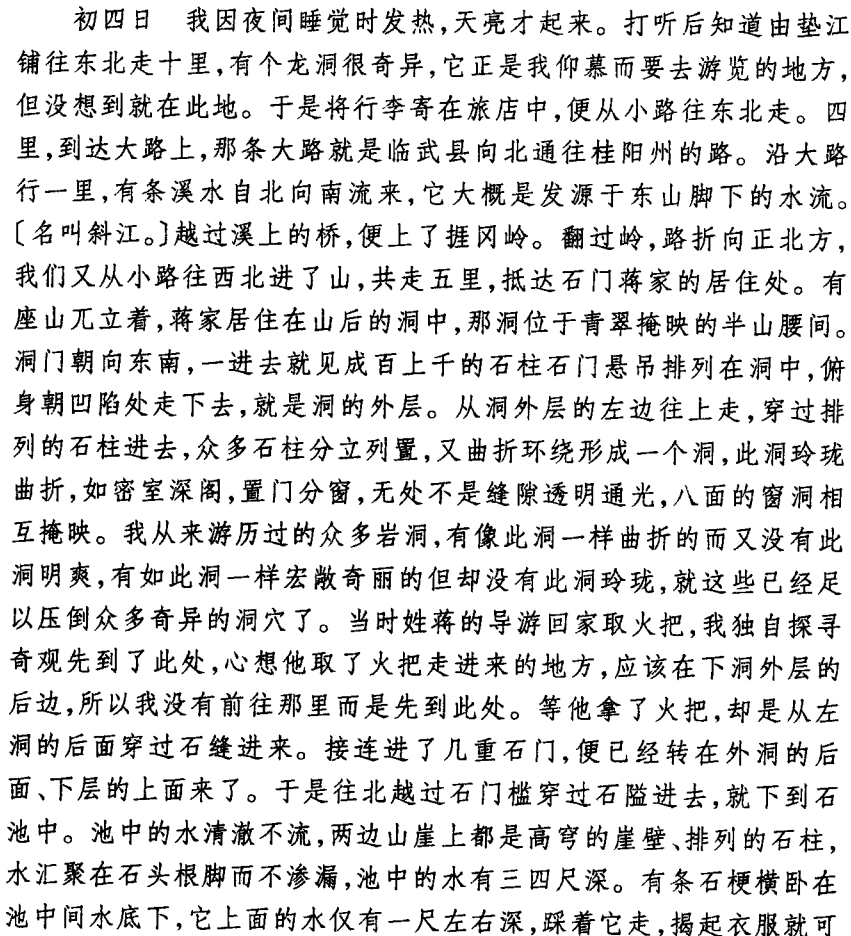 初四日　我因夜间睡觉时发热,天亮才起来。打听后知道由垫江
铺往东北走十里,有个龙洞很奇异,它正是我仰慕而要去游览的地方,
但没想到就在此地。于是将行李寄在旅店中,便从小路往东北走。四
里,到达大路上,那条大路就是临武县向北通往桂阳州的路。沿大路
行一里,有条溪水自北向南流来,它大概是发源于东山脚下的水流。
〔名叫斜江。〕越过溪上的桥,便上了捱冈岭。翻过岭,路折向正北方,
我们又从小路往西北进了山,共走五里,抵达石门蒋家的居住处。有
座山兀立着,蒋家居住在山后的洞中,那洞位于青翠掩映的半山腰间。
洞门朝向东南,一进去就见成百上千的石柱石门悬吊排列在洞中,俯
身朝凹陷处走下去,就是洞的外层。从洞外层的左边往上走,穿过排
列的石柱进去,众多石柱分立列置,又曲折环绕形成一个洞,此洞玲珑
曲折,如密室深阁,置门分窗,无处不是缝隙透明通光,八面的窗洞相
互掩映。我从来游历过的众多岩洞,有像此洞一样曲折的而又没有此
洞明爽,有如此洞一样宏敞奇丽的但却没有此洞玲珑,就这些已经足
以压倒众多奇异的洞穴了。当时姓蒋的导游回家取火把,我独自探寻
奇观先到了此处,心想他取了火把走进来的地方,应该在下洞外层的
后边,所以我没有前往那里而是先到此处。等他拿了火把,却是从左
洞的后面穿过石缝进来。接连进了几重石门,便已经转在外洞的后
面、下层的上面来了。于是往北越过石门槛穿过石隘进去,就下到石
池中。池中的水清澈不流,两边山崖上都是高穹的崖壁、排列的石柱,
水汇聚在石头根脚而不渗漏,池中的水有三四尺深。有条石梗横卧在
池中间水底下,它上面的水仅有一尺左右深,踩着它走,揭起衣服就可